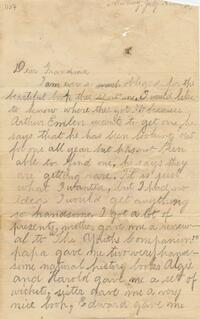 Dear Grandma
I am ever so much obliged for the
beautiful book. I would like
to know where they got it because
Arthur Emlen wants to get one, he
says that he has been looking out
for one all year but has not been
able to find one, he says they
are getting rare. It is just
what I wanted, but I had no
idea I would get anything
so handsome. I got a lot of
presents, mother gave me a renew-
al to The Youth's Companion
papa gave me two very hand-
some natural history books Algie
and Harold gave me a set of
cricket. sister gave me a very
nice book, Edward gave me